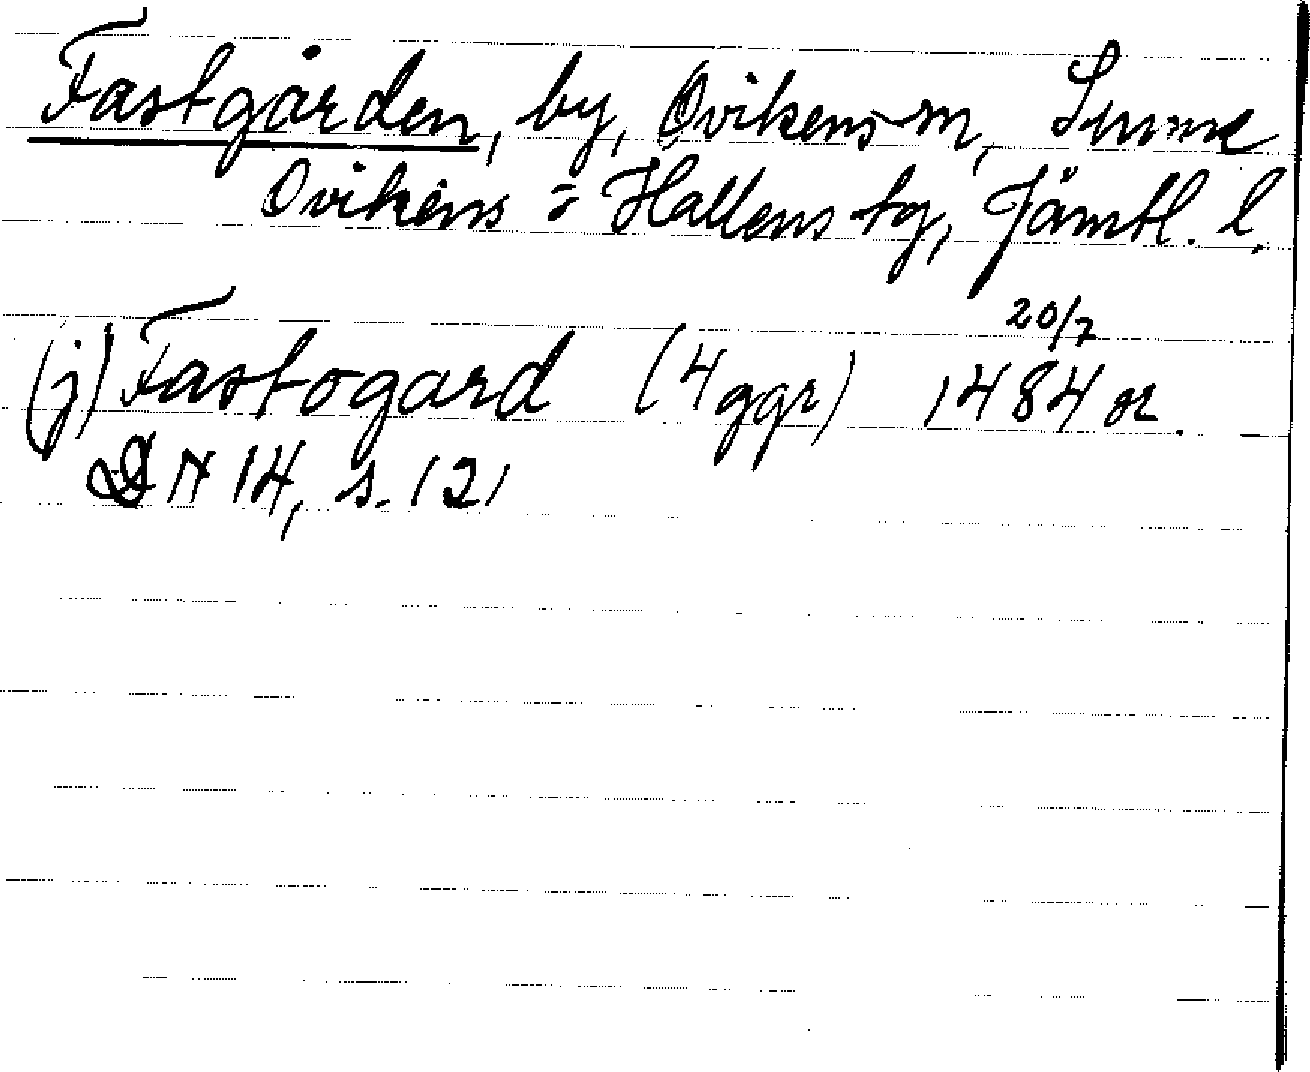 Fastgården, by, Ovikens sn, Sunne
Ovikens o Hallens tg, Jämtl. l.
20/7
(j) Fastogard (4 ggr) 1484 or.
DN 14, s. 121